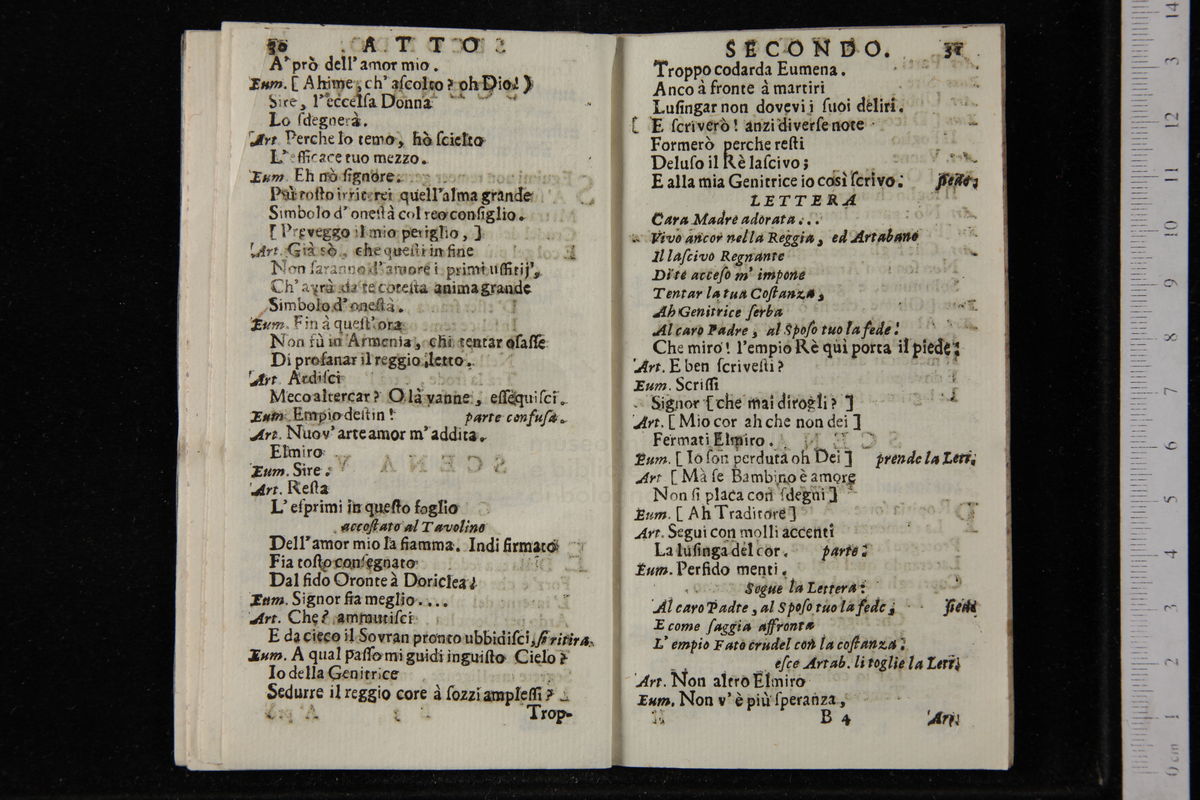 30 ATTO
A' prò dell' amor mio.
Eum. [ Ahime, ch' aſcolto? oh Dio! )
Sire, l'eccelſa Donna
Lo ſdegnerà.
Art. Perche lo temo, hò ſcielto
L' efficace tuo mezzo.
Eum. Eh nò ſignore.
Più toſto irriterei quell'alma grande
Simbolo d' oneſtà col reo conſiglio.
[ Preveggo il mio periglio, ]
Art. Già sò, che queſti in fine
Non ſaranno d'amore i primi uffitij,
Ch' avrà da te coteſta anima grande
Simbolo d' oneſtà.
Eum. Fin à queſt' ora
Non fù in Armenia, chi tentar oſaſſe
Di profanar il reggio letto.
Art. Ardiſci
Meco altercar? O là vanne, eſſequiſci.
Eum. Empio deſtin! parte confuſa.
Art. Nuov' arte amor m' addita.
Elmiro
Eum. Sire.
Art. Reſta
L' eſprimi in queſto foglio
accoſtato al Tavolino
Dell' amor mio la fiamma. Indi firmato
Fia toſto conſegnato
Dal fido Oronte à Doriclea.
Eum. Signor fia meglio....
Art. Che? ammutiſci
E da cieco il Sovran pronto ubbidiſci, ſi ritira
Eum. A qual paſſo mi guidi inguiſto Cielo?
Io della Genitrice
Sedurre il reggio core à ſozzi ampleſſi?
Trop-
SECONDO. 31
Troppo codarda Eumena.
Anco à fronte à martiri
Luſingar non dovevi i ſuoi deliri.
[ E ſcriverò! anzi diverſe note
Formerò perche reſti
Deluſo il Rè laſcivo;
E alla mia Genitrice io così ſcrivo. ſiede,
LETTERA
Cara Madre adorata...
Vivo ancor nella Reggia, ed Artabano
Il laſcivo Regnante
Di te acceſo m' impone
Tentar la tua Coſtanza,
Ah Genitrice ſerba
Al caro Padre, al Spoſo tuo la fede!
Che miro! l'empio Rè qui porta il piede!
Art. E ben ſcriveſti?
Eum. Scriſſi
Signor [ che mai dirogli? ]
Art. [ Mio cor ah che non dei ]
Fermati Elmiro.
Eum. [ Io ſon perduta oh Dei ] prende la Lett.
Art [ Mà ſe Bambino è amore
Non ſi placa con ſdegni ]
Eum. [ Ah Traditore ]
Art. Segui con molli accenti
La luſinga del cor. parte.
Eum. Perfido menti.
Segue la Lettera:
Al caro Padre, al Spoſo tuo la fede, ſiede
E come ſaggia affronta
L' empio Fato crudel con la coſtanza.
eſce Artab. li toglie la Lett.
Art. Non altro Elmiro
Eum. Non v' è più ſperanza,
B 4 Art.
0 cm 1 2 3 4 5 6 7 8 9 10 11 12 13 14